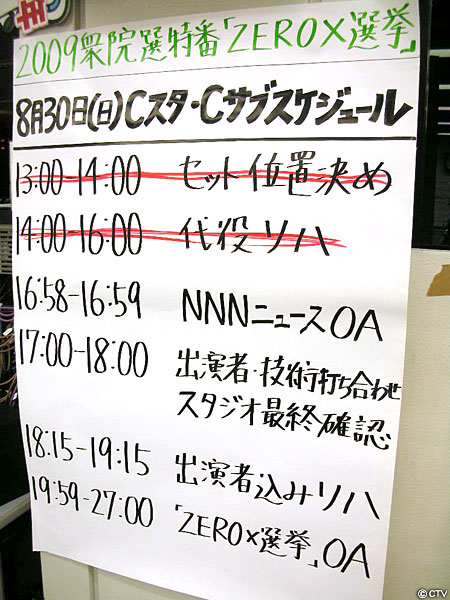 2009衆院選特番「ZERO×選挙」
8月30日(日)Cスタ・Cサブスケジュール
13:00-14:00 セット位置決め
14:00-16:00 代役リハ
16:58-16:59 NNNニュースOA
17:00-18:00 出演者・技術打ち合わせ
スタジオ最終確認
18:15-19:15 出演者込みリハ
19:59-27:00 「ZERO×選挙」OA
©CTV